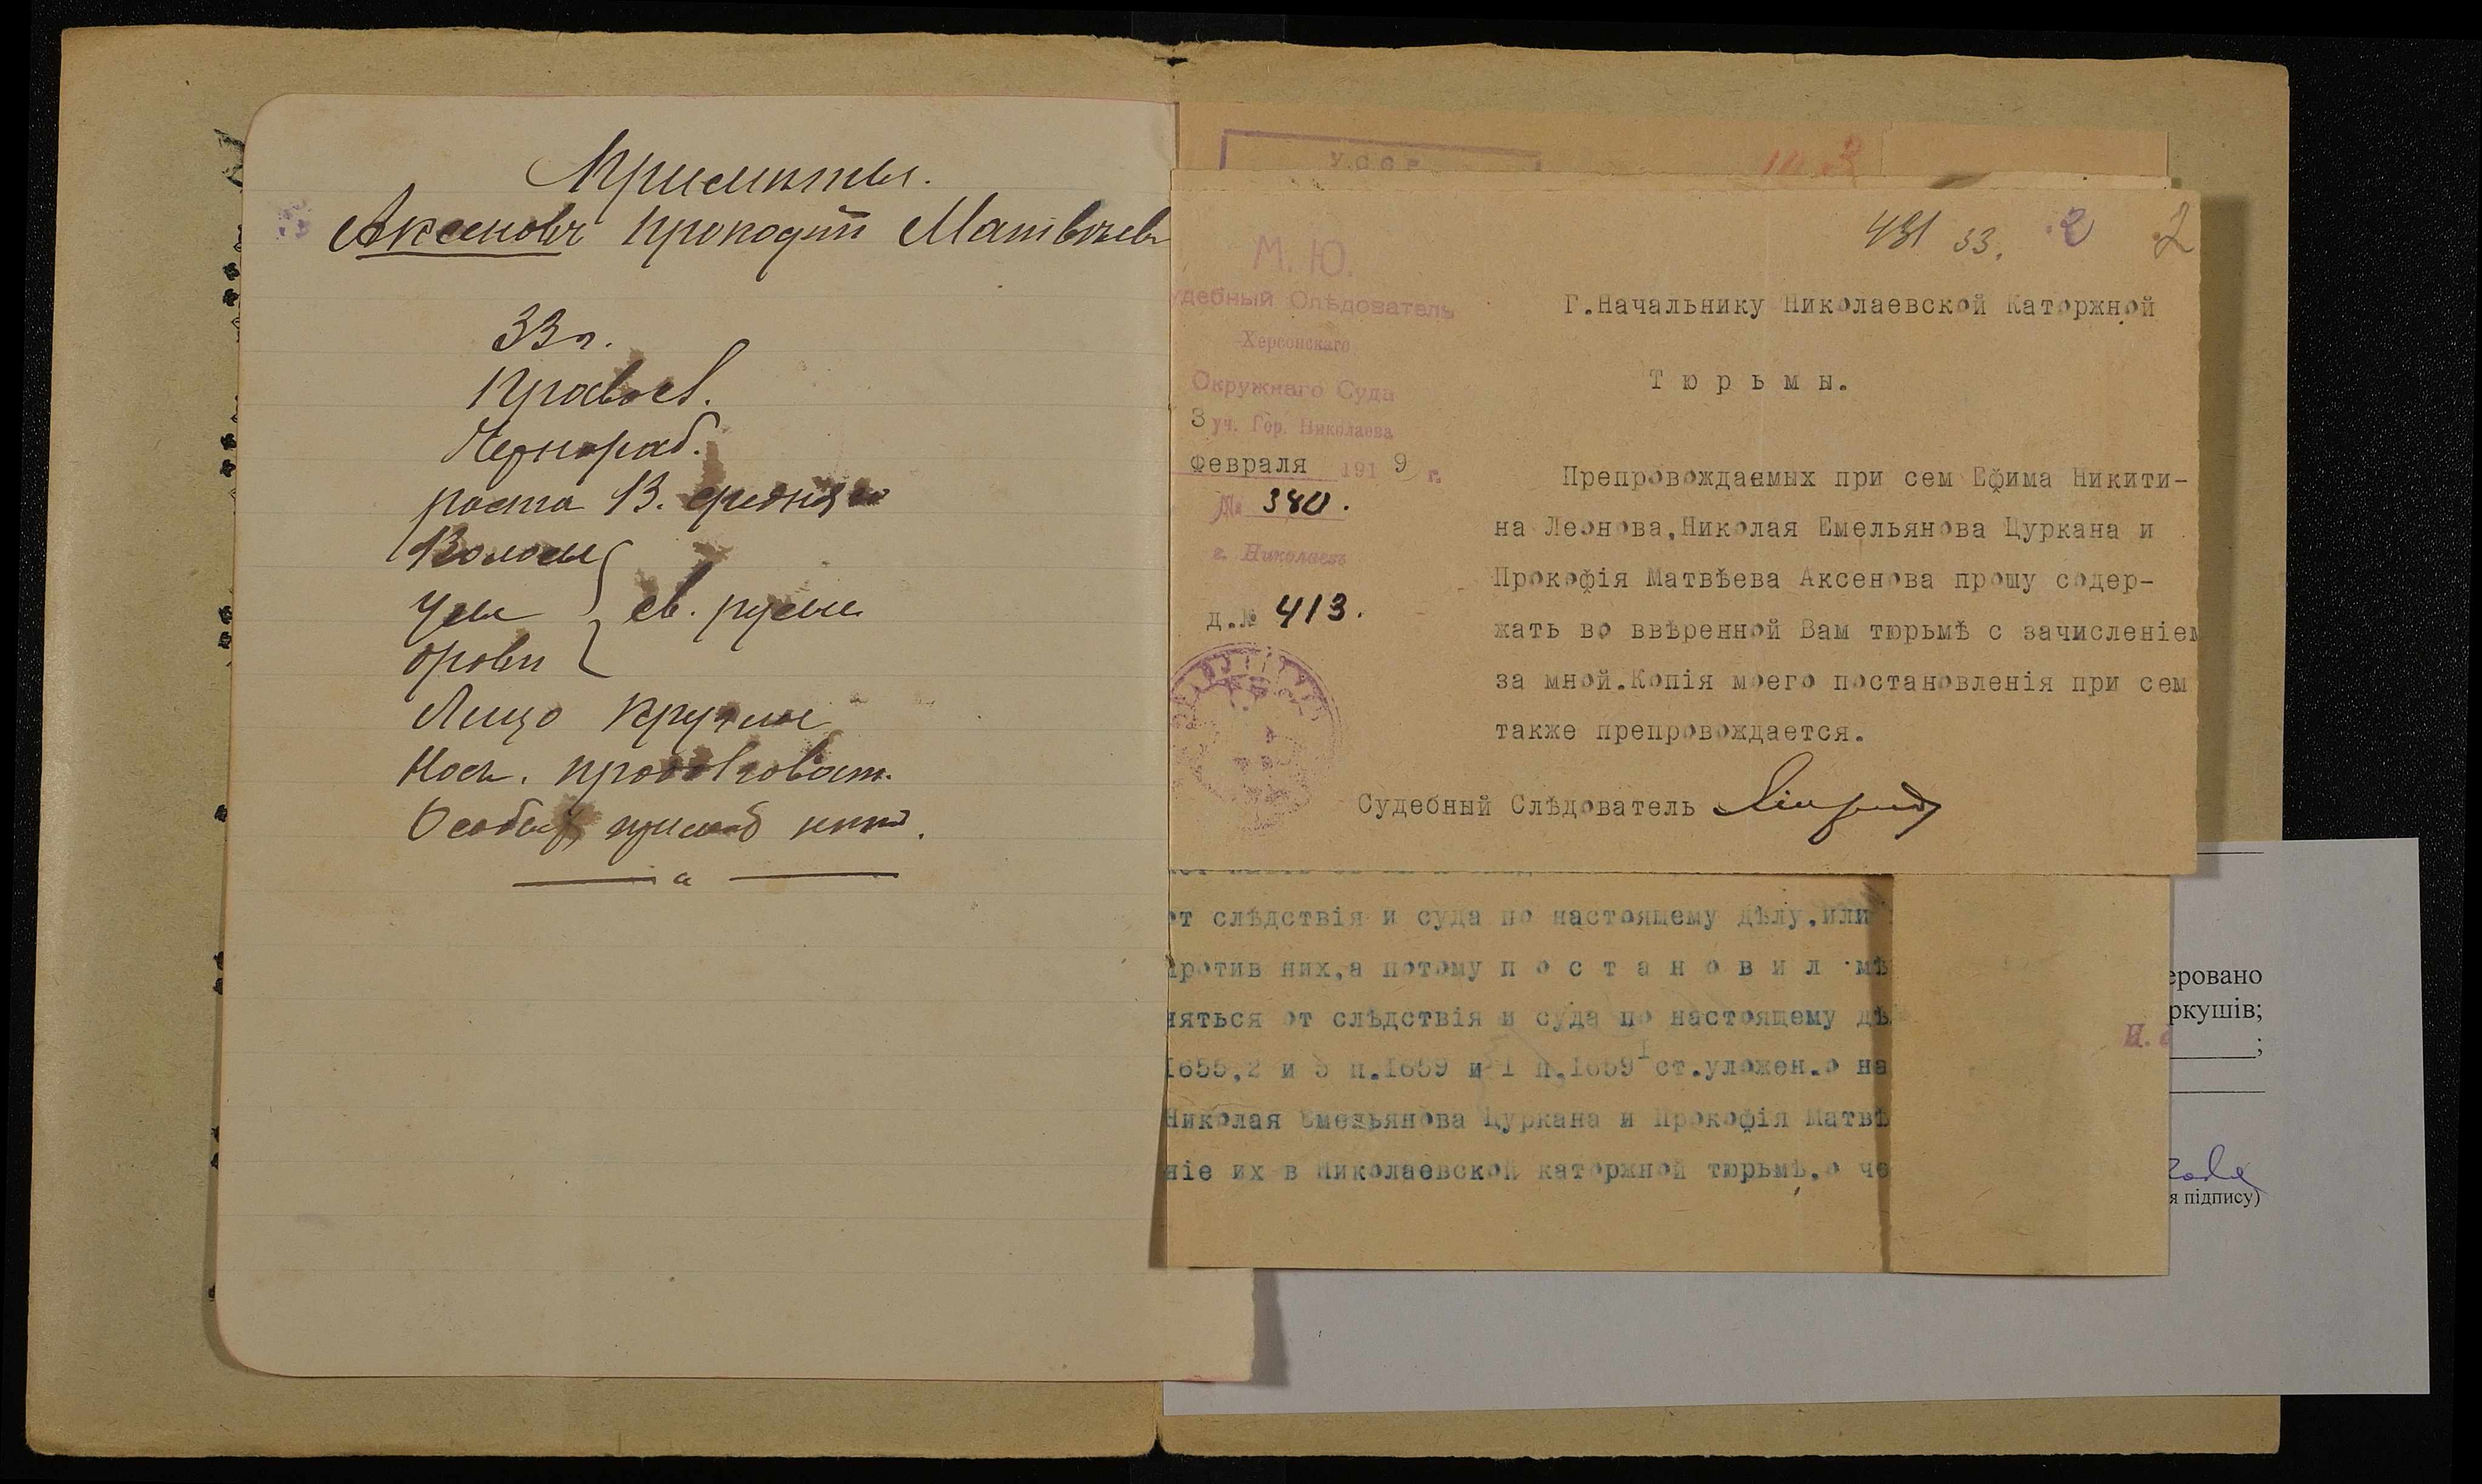 Приметы.
Аксеновъ Прокофій Матвѣевъ
33 л.
Правосл.
Чернораб.
роста В. средняго
Волосы
Усы
брови
св. русые
Лицо круглое
Носъ. продолговат.
Особых примѣт нѣт.
У.С.С.Р.
431 33. 2 2
М. Ю.
удебный Слѣдователь
Херсонскаго
Окружнаго Суда
3 уч. Гор. Николаева
Февраля 1919 г.
№ 380.
г. Николаевъ
д.№ 413.
Г.Начальнику Николаевской Каторжной
Тюрьмы.
Препровождаемых при сем Ефима Никити-
на Леонова,Николая Емельянова Цуркана и
Прокофія Матвѣева Аксенова прошу содер-
жать во ввѣренной Вам тюрьмѣ с зачисленіем
за мной.Копія моего постановленія при сем
также препровождается.
Судебный Слѣдователь
от слѣдствія и суда по настоящему дѣлу,или
против них,а потому п о с т а н о в и л мѣ
няться от слѣдствія и суда по настоящему дѣ
1655,2 и 3 п.1659 и 1 п.1659¹ ст.уложен.о на
Николая Емельянова Цуркана и Прокофія Матвѣ
ніе их в Николаевской каторжной тюрьмѣ,о че
еровано
ркушів;
;
я підпису)